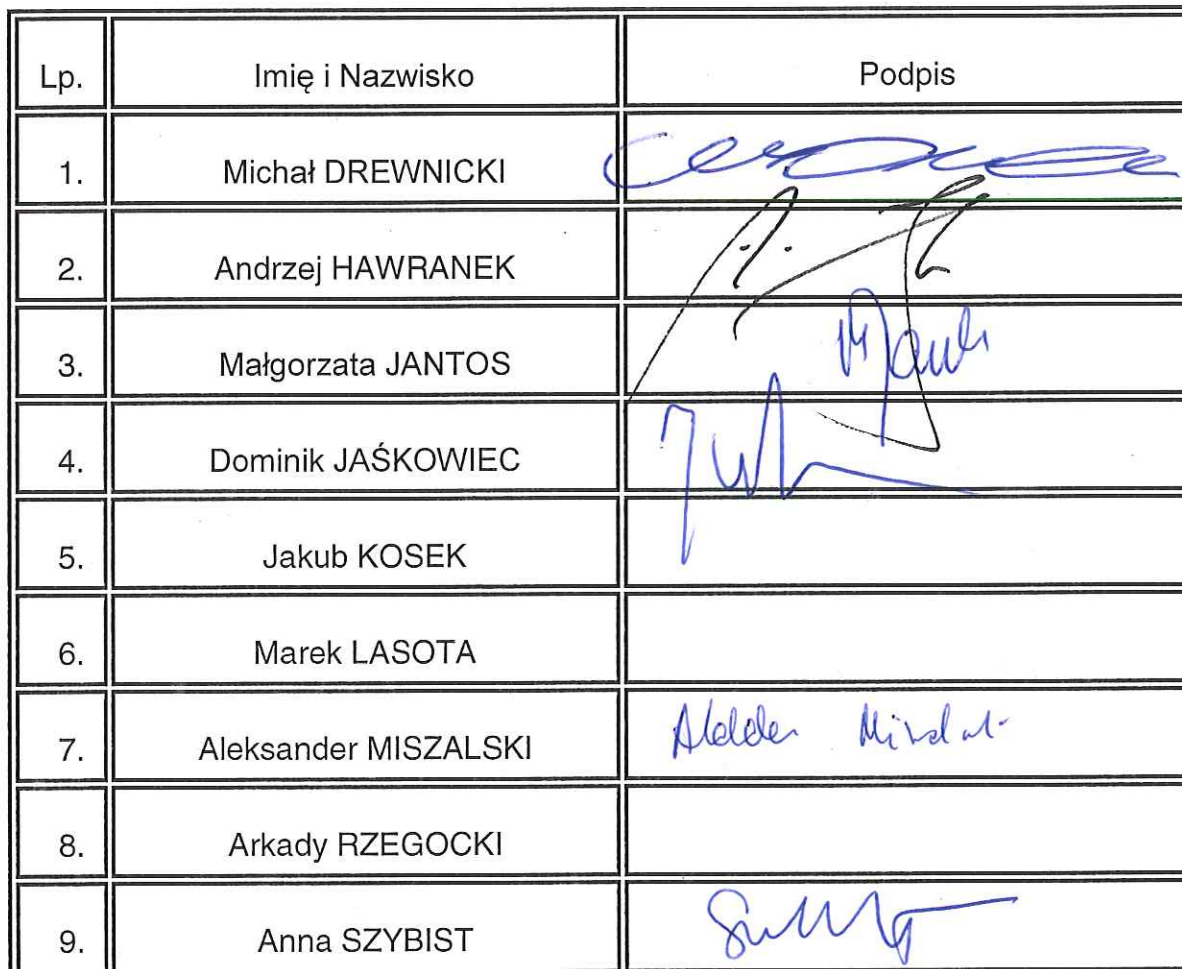 Lp. Imię i Nazwisko Podpis
1. Michał DREWNICKI
2. Andrzej HAWRANEK
3. Małgorzata JANTOS
4. Dominik JAŚKOWIEC
5. Jakub KOSEK
6. Marek LASOTA
7. Aleksander MISZALSKI
8. Arkady RZEGOCKI
9. Anna SZYBIST